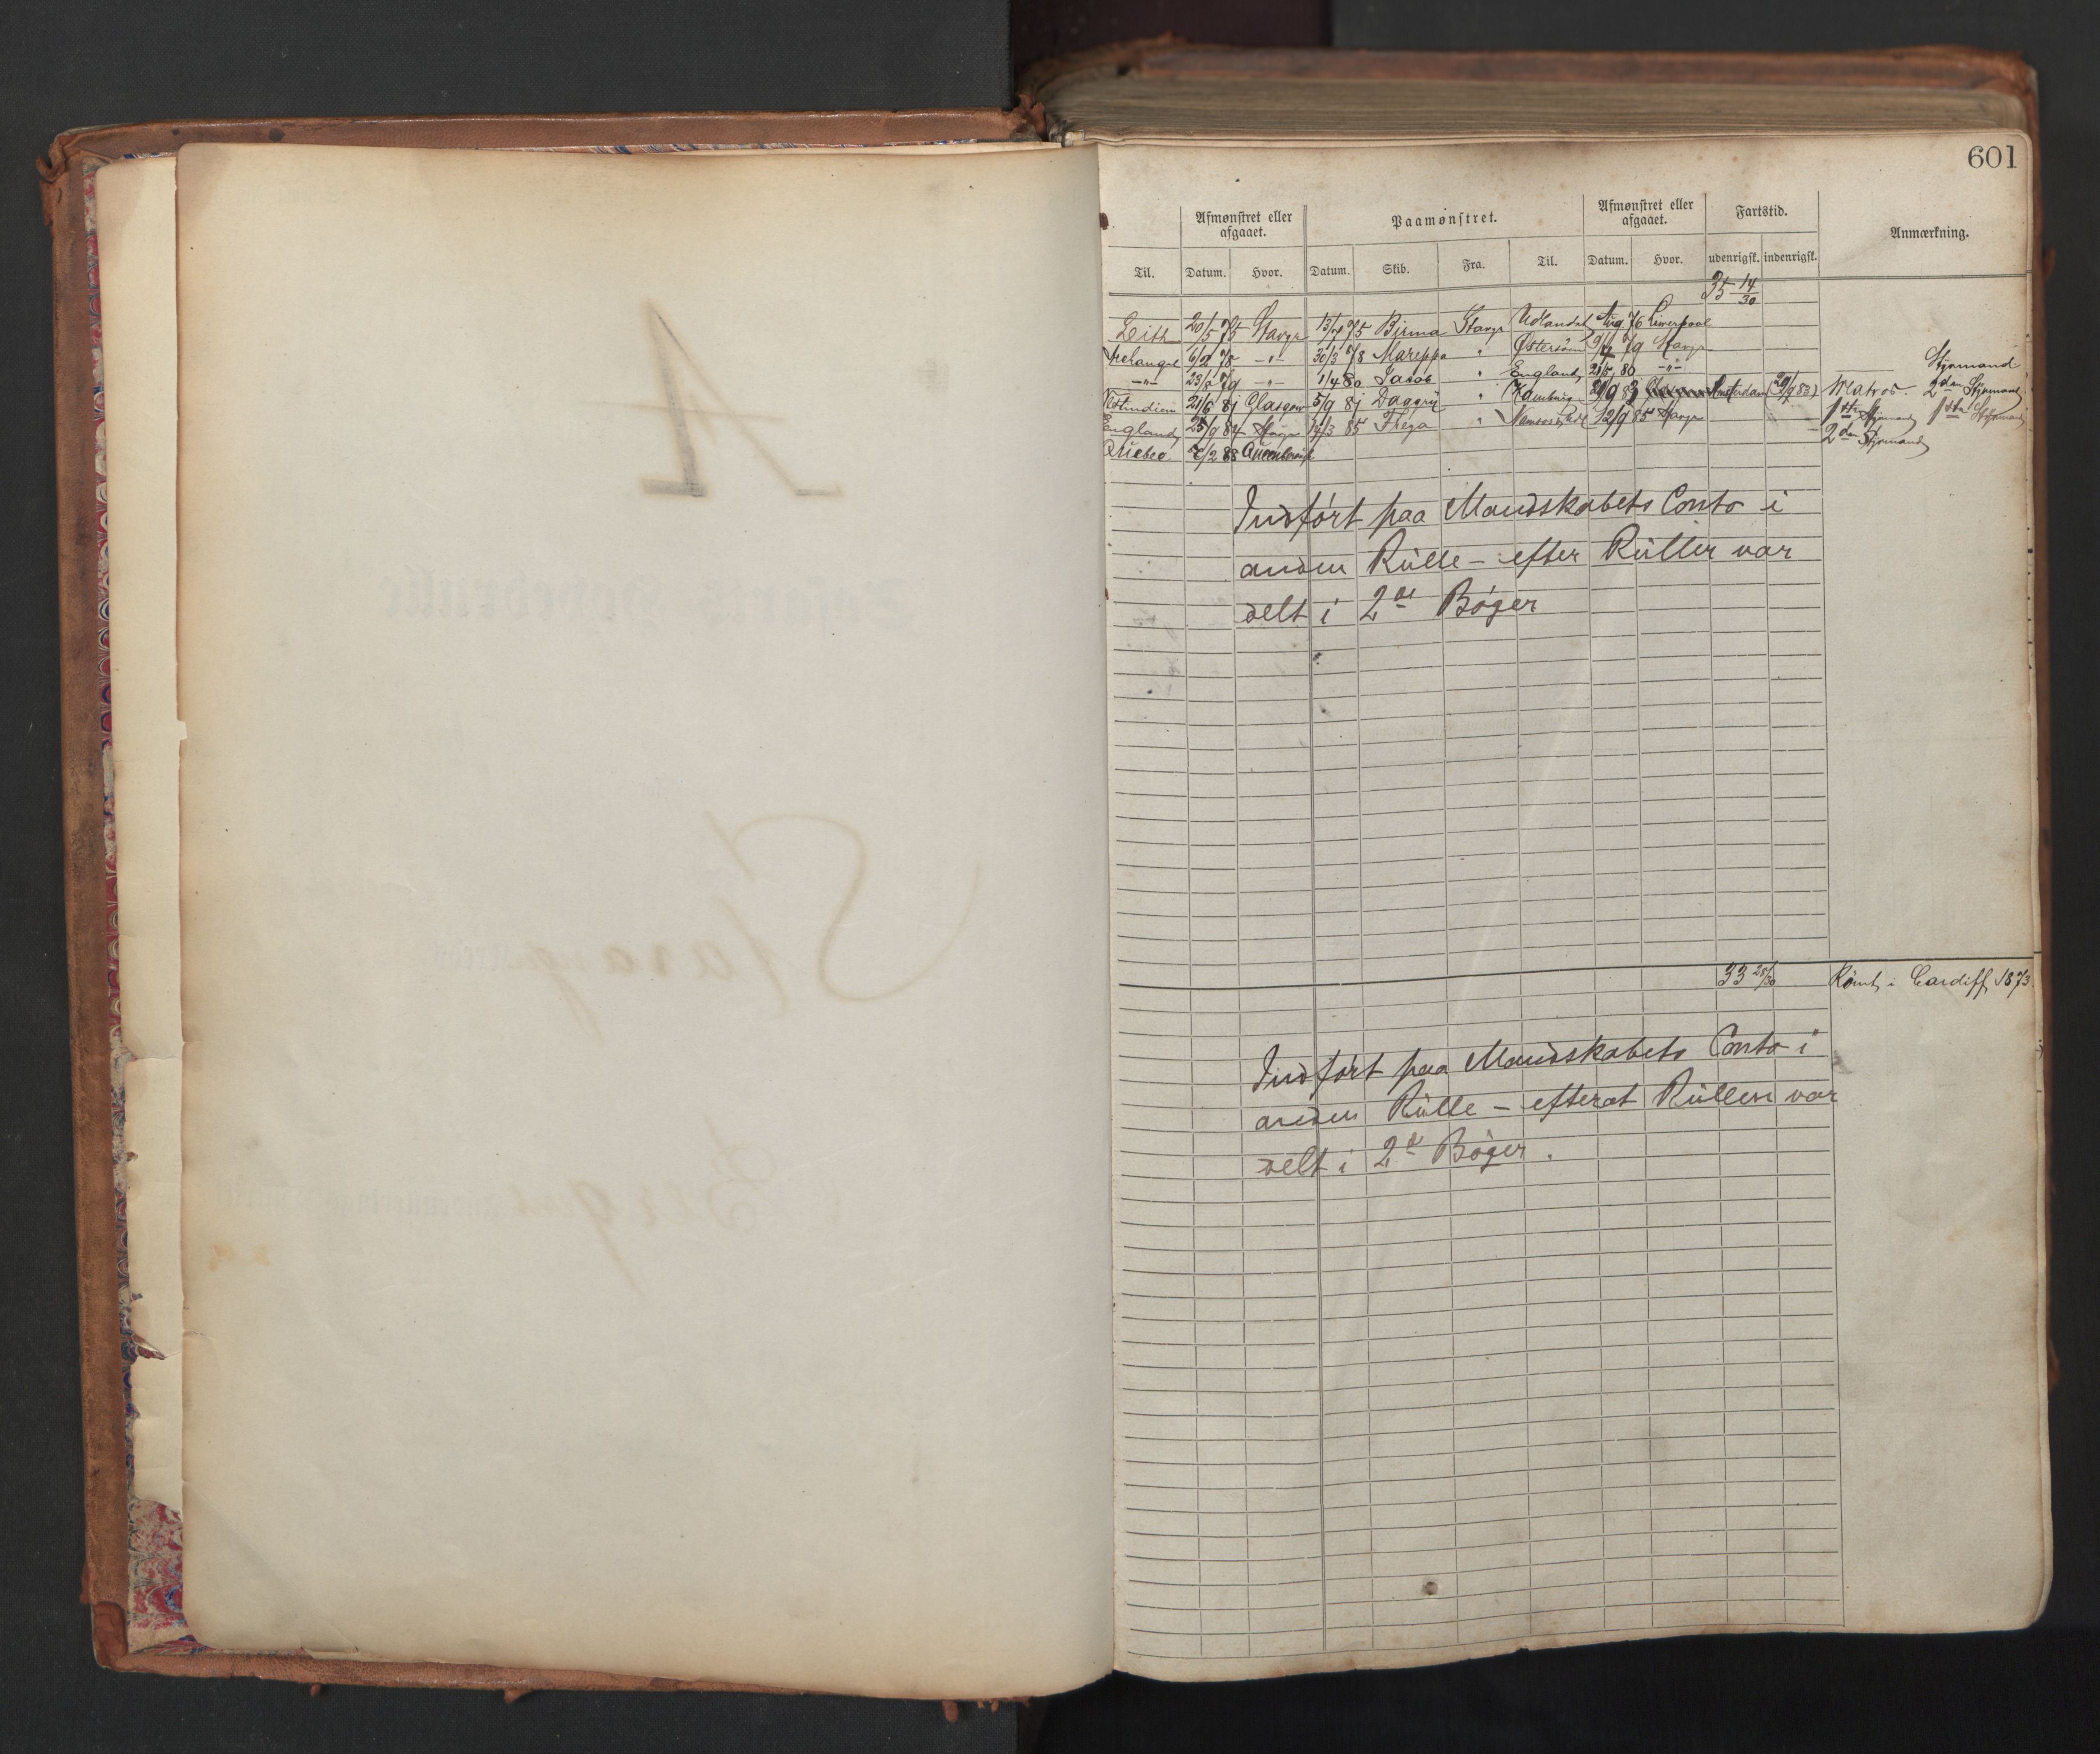 601
Afmønstret eller afgaaet. Paamønstret. Afmønstret eller afgaaet. Fartstid. Anmærkning.
Til. Datum. Hvor. Datum. Skib. Fra. Til. Datum. Hvor. udenrigsk. indenrigsk.
35 14/30
Leith 20/5 75 Stavgr 13/7 75 Birma Stavgr Udlandet Aug. 76 Liverpool
Archangel 6/2 78 -"- 30/3 78 Mareppa " Østersøen 9/4 79 Stavgr Styrmand
-"- 23/8 79 -"- 1/4 80 Jacob " England 21/5 80 -"-
Ostindien 21/6 81 Glasgow 5/9 81 Daggry " Hamburg 29/9 83 Amsterdam (29/9 83) Matros. 2den Styrmand
England 25/9 84 Stavgr 14/3 85 Freya " 12/9 85 Stavgr 1ste Styrmand 1ste Styrmand
Quebec 7/2 88 2den Styrmand
Indført paa Mandskabets Conto i
anden Rülle – efter Rüller var
delt i 2de Bøger
33 28/30 Rømt i Cardiff 1873
Indført paa Mandskabets Conto i
anden Rülle – efterat Rüllen var
delt i 2de Bøger.